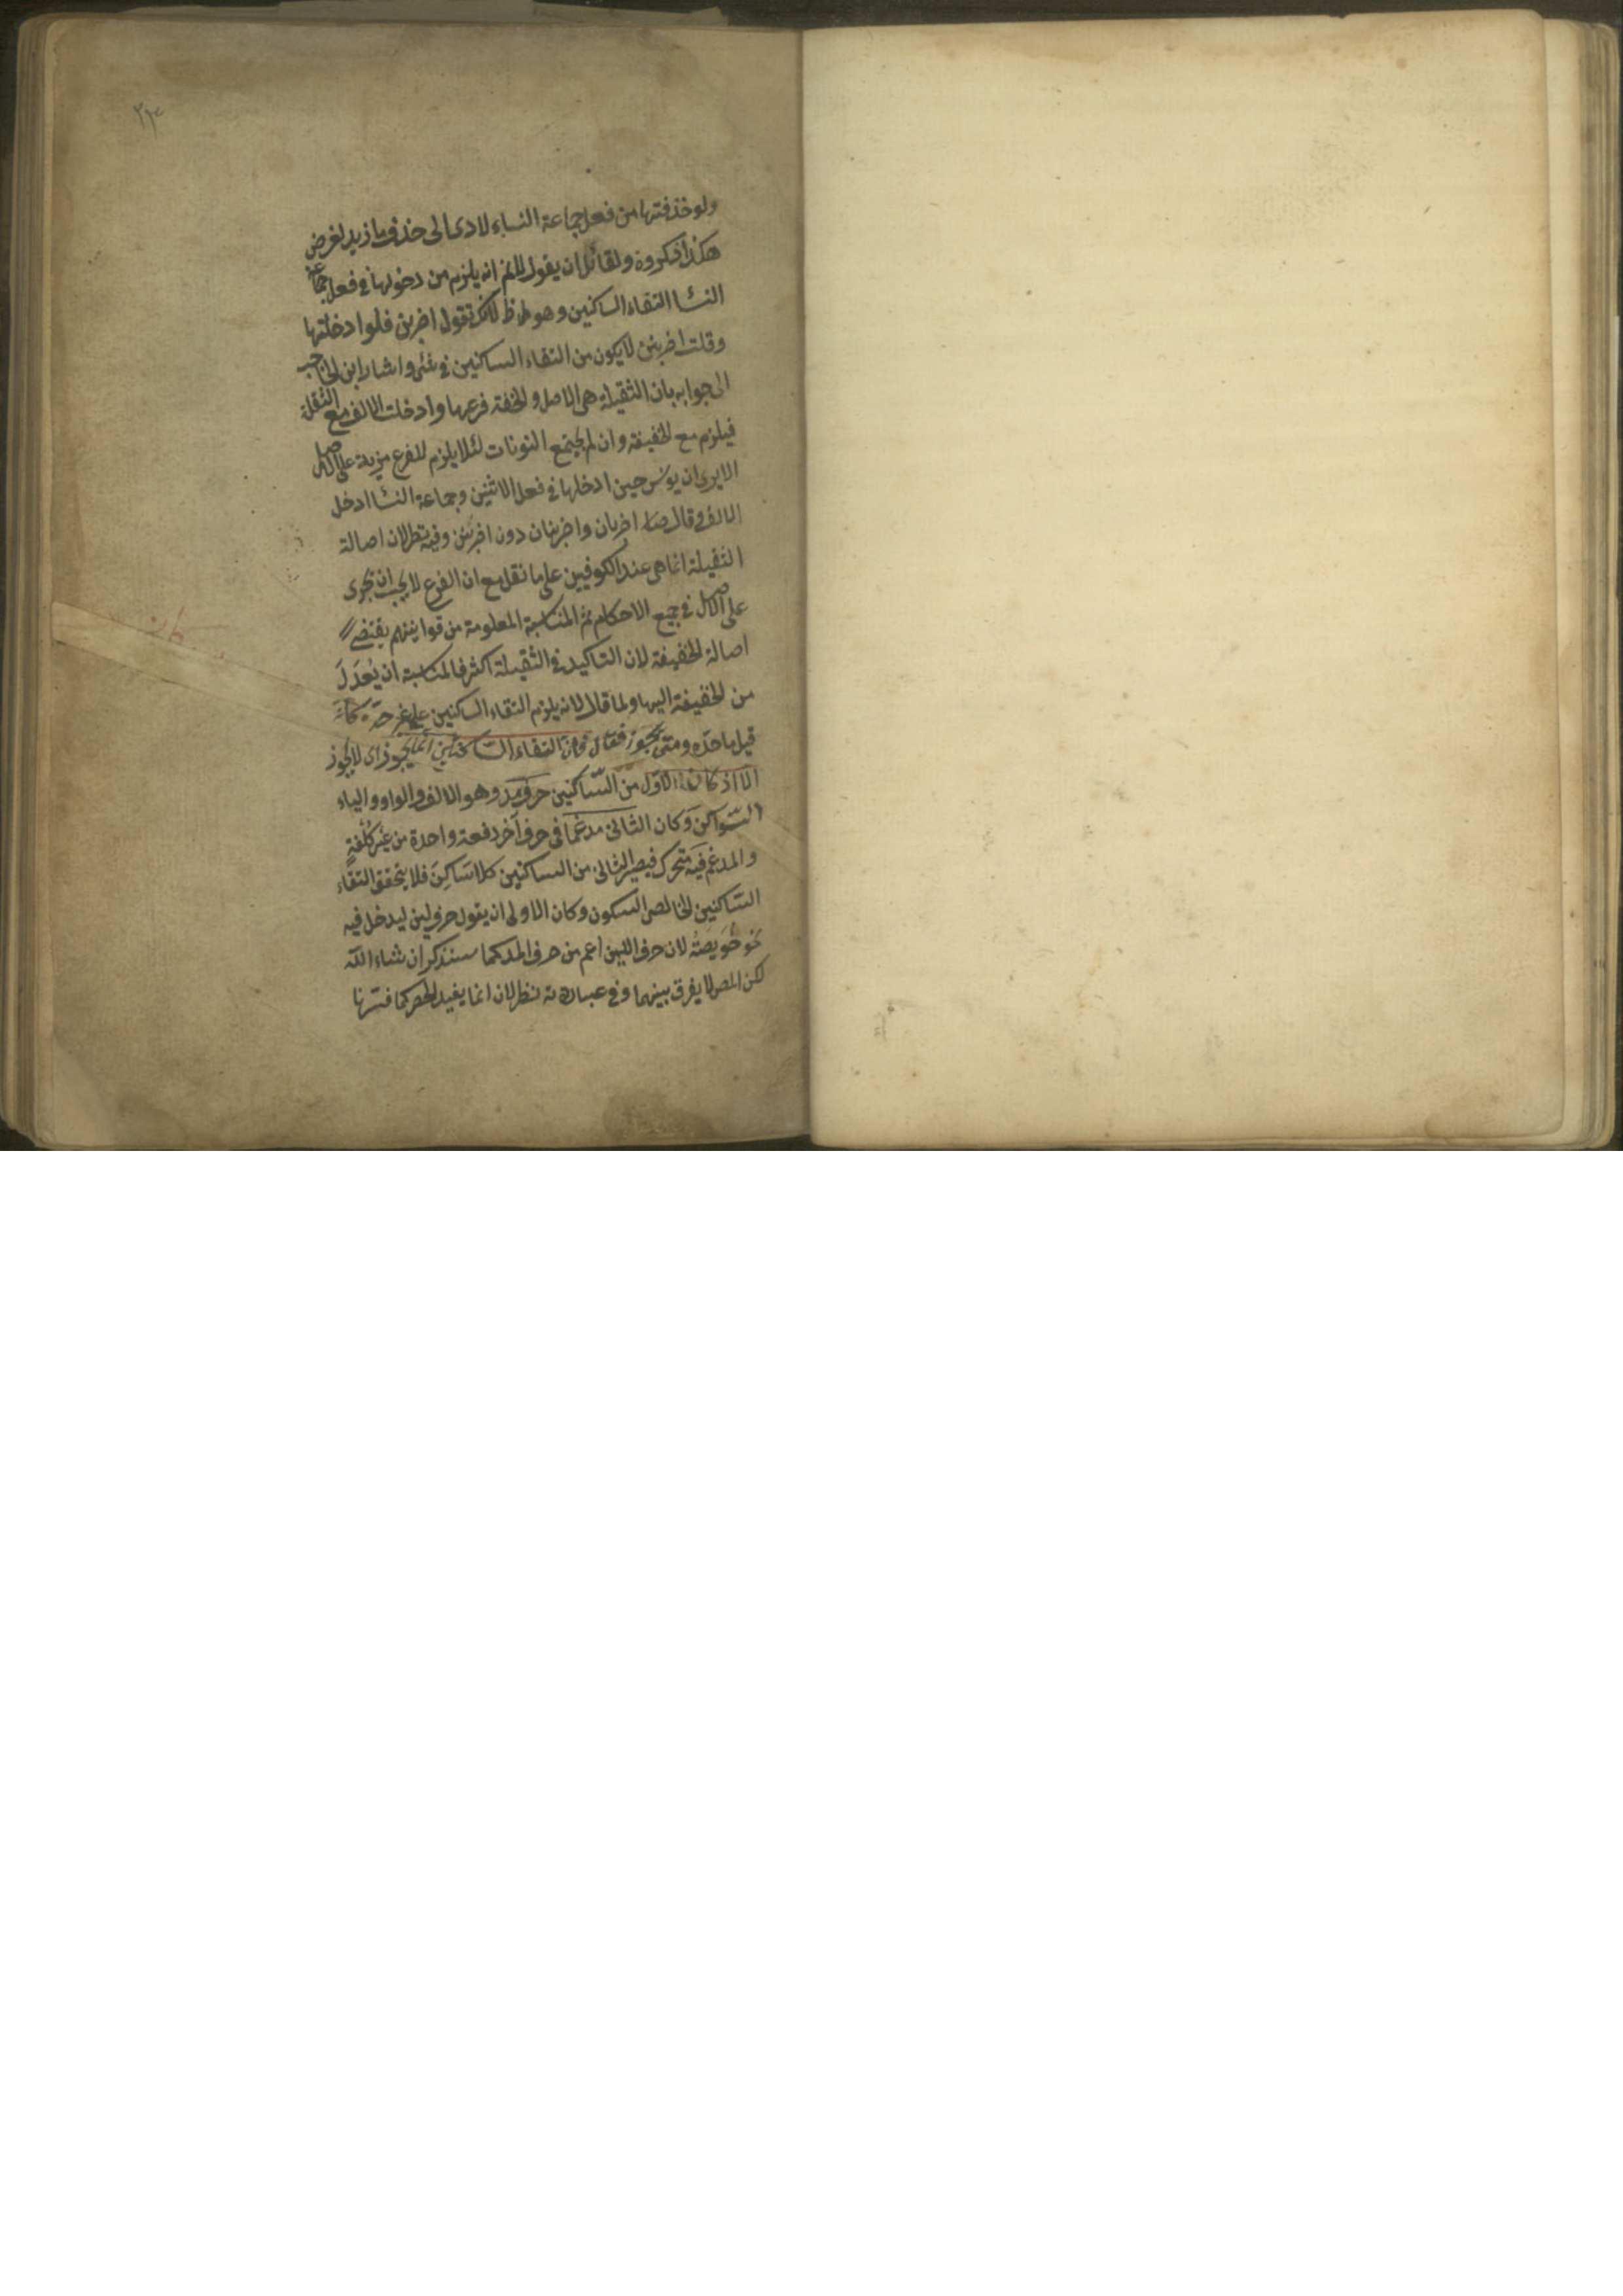 ولو خذفتها من فعل جماعة النساء لادى الى خذف ما زيد لغرض
هكذا ذكروه ولقائل ان يقول لانم انه يلزم من دخولها في فعل جماعة
النسا التقاء الساكنين وهو ظ لانك تقول اضربن فلو ادخلتها
وقلت اضربنن لا يكون من التقاء الساكنين في شئ واشار ابن الحاجب
الى جوابه بان الثقيلة هي الاصل والخفة فرعها وادخلت الالف مع الثقلة
فيلزم مع الخفيفة وان لم يجتمع النونات لئلا يلزم للفرع مزية على الاصل
الا يرى ان يونس حين ادخلها في فعل الاثنين وجماعة النسا ادخل
الالف وقال اضربان واضربنان دون اضربنن وفيه نظر لان اصالة
الثقيلة انما هي عند الكوفيين على ما نقل مع ان الفرع لا يجب ان يجرى
على الاصل في جميع الاحكام ثم المناسبة المعلومة من قوانينهم يقتضے
اصالة الخفيفة لان التاكيد في الثقيلة اكثر فالمناسبة ان يُعدَلَ
من الخفيفة اليها ولما قال لانه يلزم التقاء الساكنين على غير حدّه كانّه
قيل ما حدّه ومتى يجوز فقال فانّ التقاء السّاكنين انّما يجوز اى لا يجوز
الّا اذ كان الاوّل من السّاكنين حرف مد وهو الالف والواو والياء
السّواكن وكان الثانى مدغما في حرف آخر دفعة واحدة من غير كُلْفةٍ
والمدغم فيه متحرك فيصير الثانى من الساكنين كلا ساكن فلا يتحقق التقاء
السّاكنين الخالص السكون وكان الاولى ان يقول حرف لين ليدخل فيه
نحو خُوَيصّة لان حرف اللين اعم من حرف المد كما سنذكر ان شاء اللّه
لكن المص لا يفرق بينهما وفي عبارته نظر لان انما يفيد الحصر كما فسّرنا